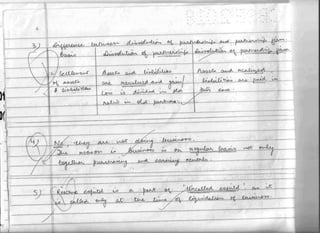 3) Difference between dissolution of partnership and partnership firm
Basis Dissolution of partnership Dissolution of partnership firm
1. Settlement Assets and liabilities Assets are realized
of assets are revalued and gain/ liabilities are paid in
& liabilities Loss is divided in old this case.
ratio in old partners.
4) No, they are not doing business.
The reason is Business is on regular basis not only
together purchasing and earning rentals.
5) Reserve capital is a part of 'Uncalled capital' as it
is called only at the time of liquidation of business.